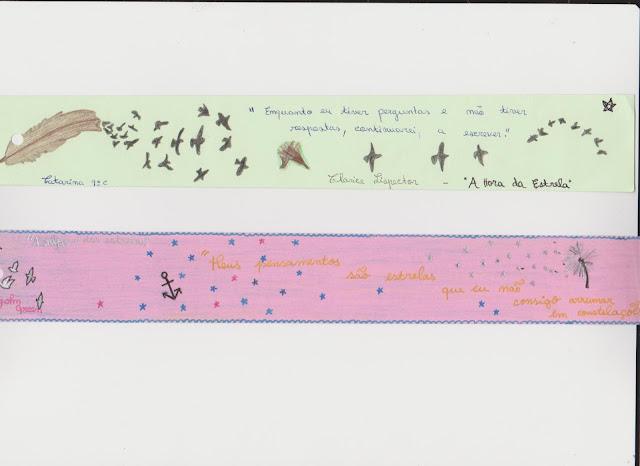 "Enquanto eu tiver perguntas e não tiver
respostas, continuarei, a escrever."
Catarina 9º C
Clarice Lispector - "A Hora da Estrela"
"Meus pensamentos
são estrelas
que eu não
consigo arrumar
em constelações
John
Green